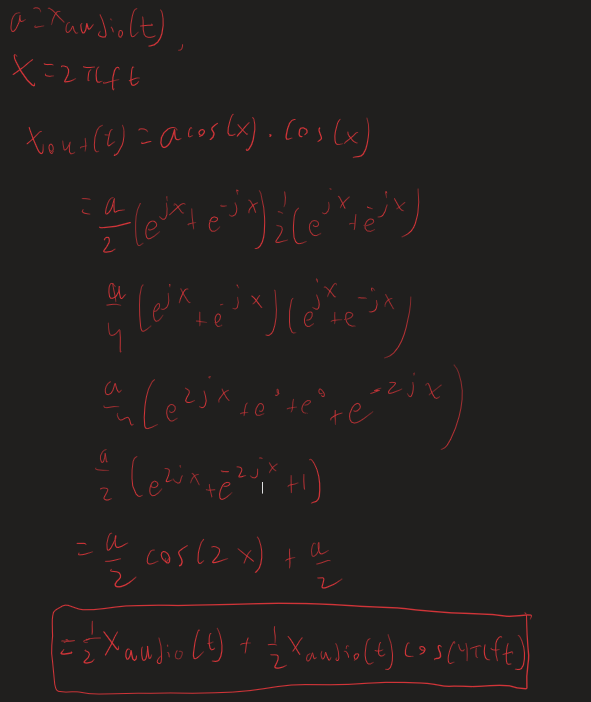 a = x_audio(t),
x = 2πft
x_out(t) = a cos(x) · cos(x)
= a/2 (e^{jx} + e^{-jx}) 1/2 (e^{jx} + e^{-jx})
a/4 (e^{jx} + e^{-jx})(e^{jx} + e^{-jx})
a/4 (e^{2jx} + e^0 + e^0 + e^{-2jx})
a/2 (e^{2jx} + e^{-2jx} + 1)
= a/2 cos(2x) + a/2
= 1/2 x_audio(t) + 1/2 x_audio(t) cos(4πft)